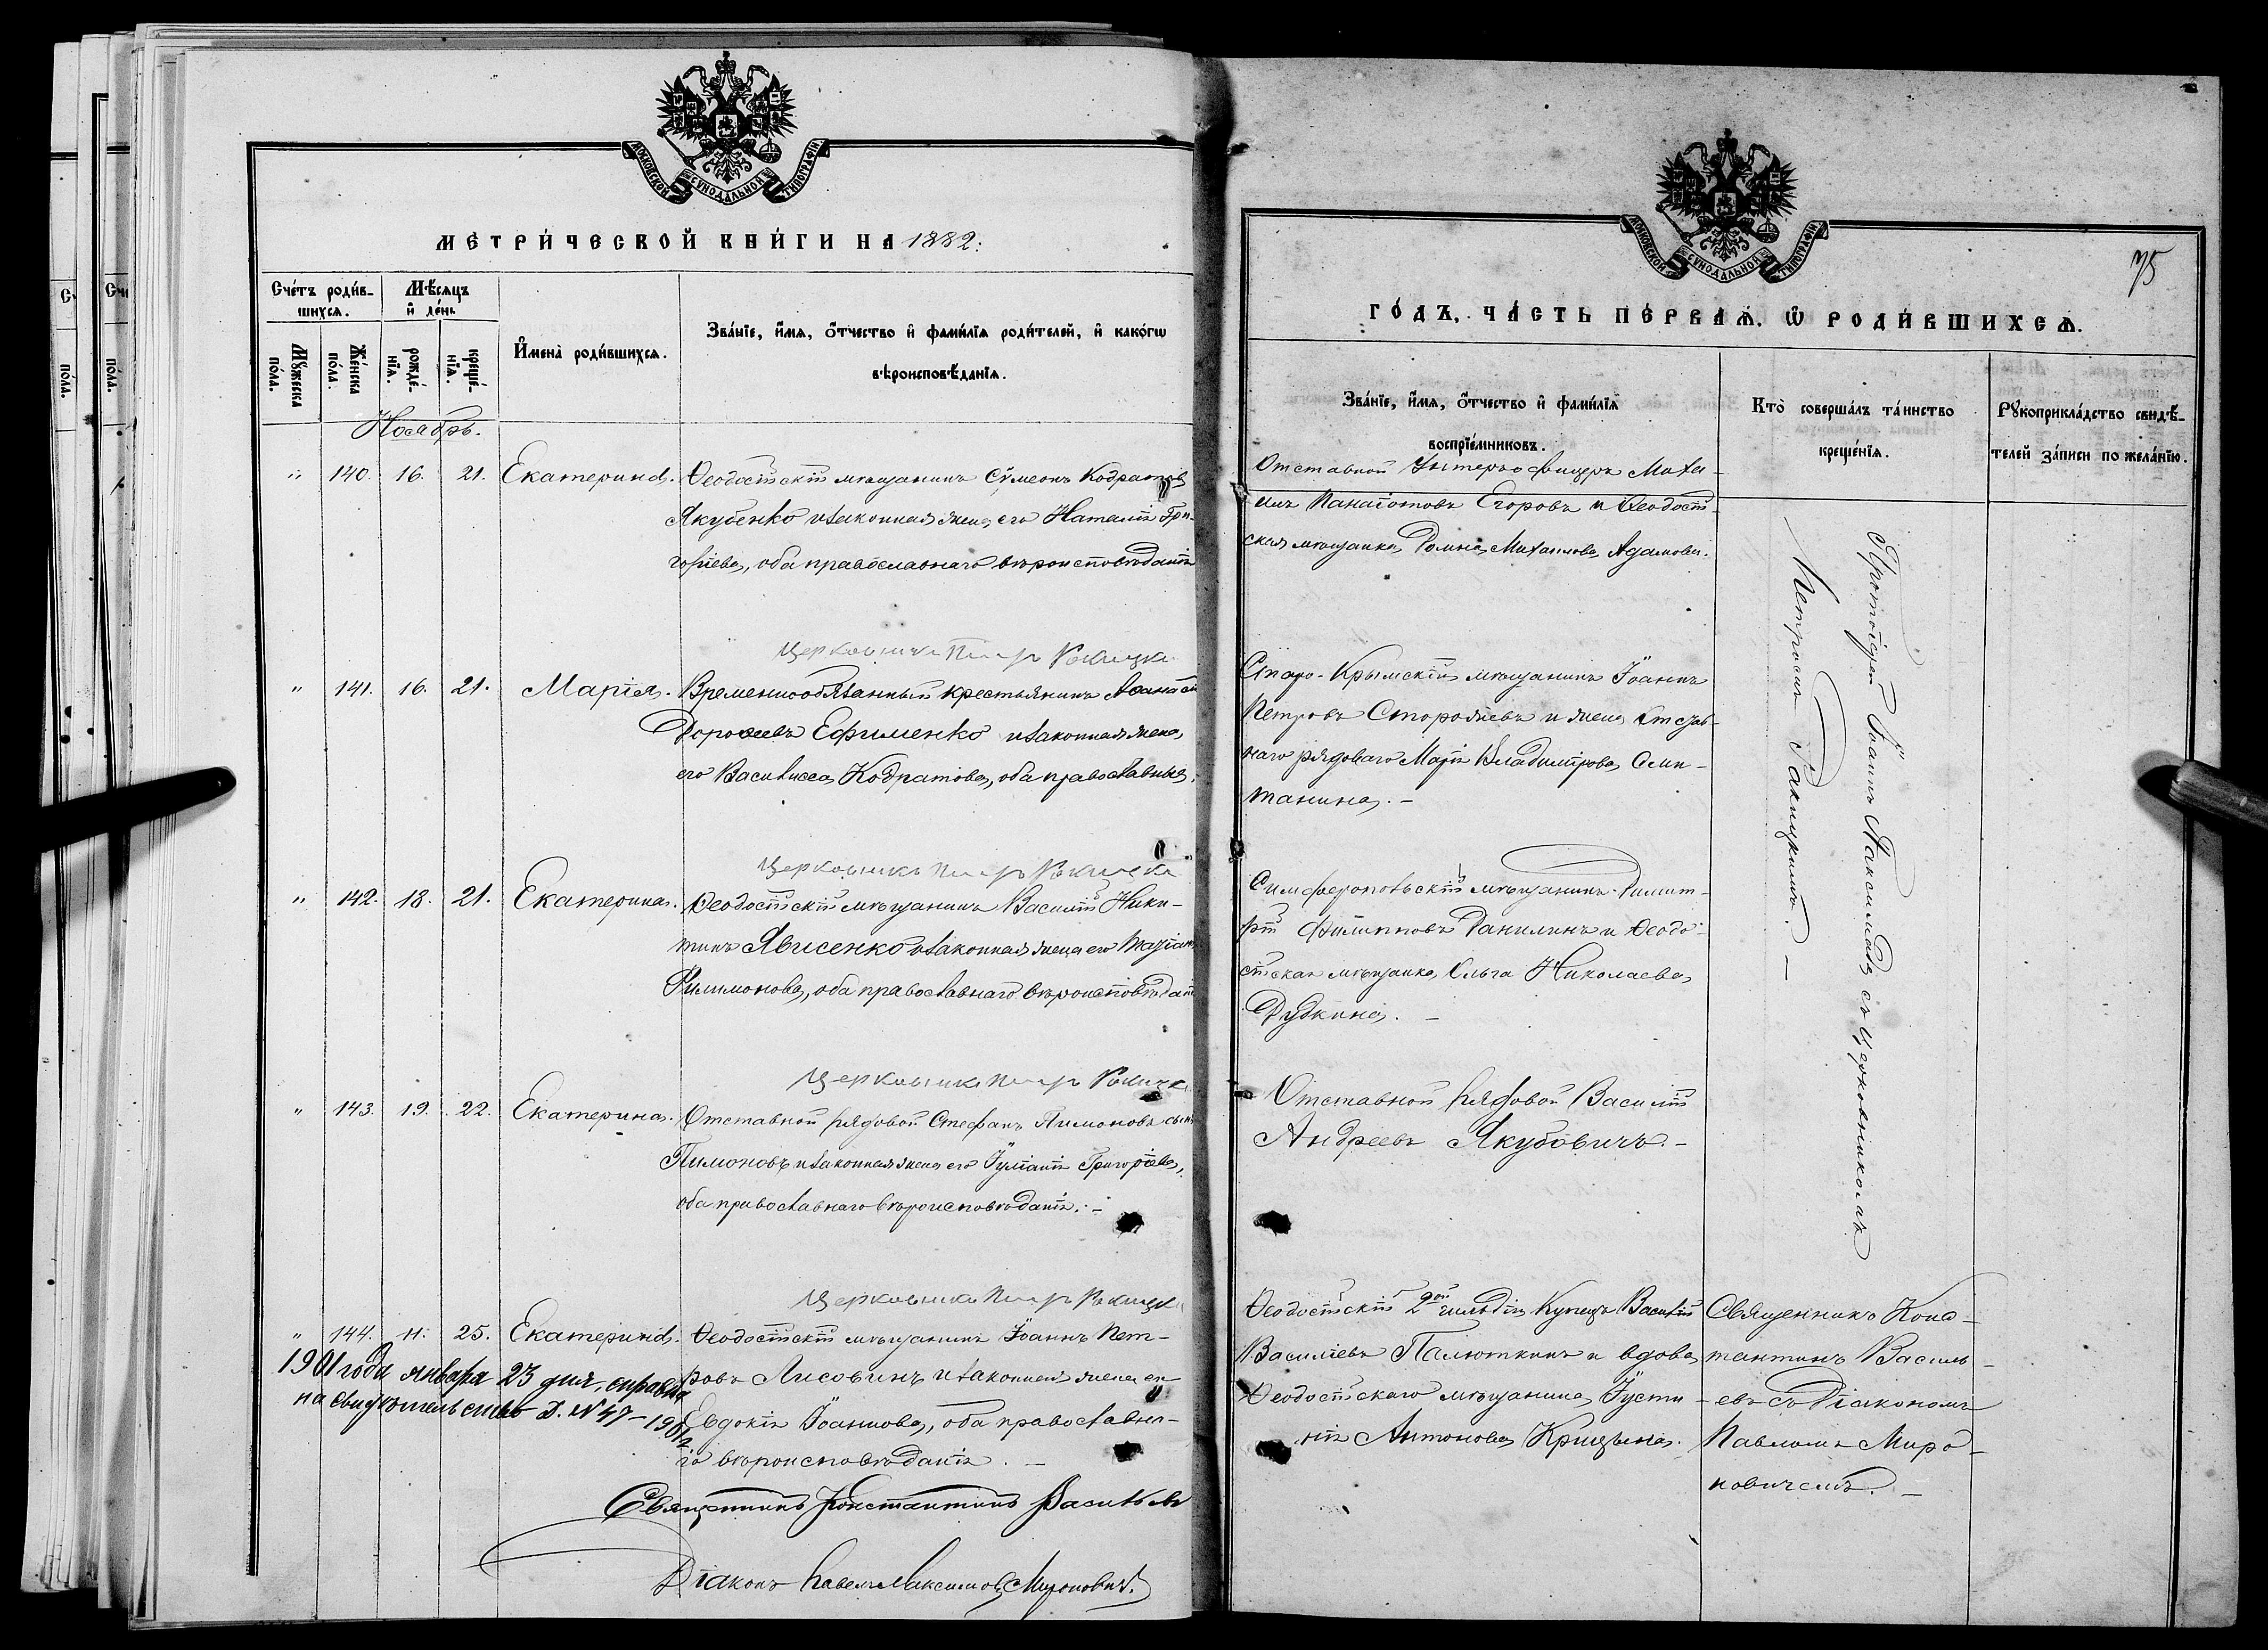 МОСКОВСКОЙ СѴНОДАЛЬНОЙ ТИПОГРАФІИ
МЕТРИ́ЧЕСКОЙ КНИ́ГИ НА 1882.
Сче́тъ роди́в-
шихсѧ.
Мѣ́сѧцъ
и҆ де́нь
Мꙋ́жеска
по́ла.
Же́нска
по́ла.
рожде́-
нїѧ.
креще́-
нїѧ.
И҆мена̀ роди́вшихсѧ.
Зва́нїе, и҆́мѧ, ѻ҆́тчество и҆ фами́лїѧ роди́телей, и҆ како́гѡ
вѣроисповѣ́данїѧ.
Ноябрь.
" 140. 16. 21. Екатерина. Ѳеодосійскій мѣщанинъ Сѵмеонъ Кодратовъ
Якубенко и законная жена его Наталія Гри-
горіева, оба православнаго вѣроисповѣданія
Церковникъ Петръ Ракицкій
" 141. 16. 21. Марія. Временнообязанный крестьянинъ Аѳанасій
Дороѳеевъ Ефименко и законная жена
его Василисса Кодратова, оба православные.
Церковникъ Петръ Ракицкій
" 142. 18. 21. Екатерина. Ѳеодосійскій мѣщанинъ Василій Ники-
тинъ Явисенко и законная жена его Маріана
Филимонова, оба православнаго вѣроисповѣданія
Церковникъ Петръ Ракицкій
" 143. 19. 22. Екатерина. Отставной рядовой Стефанъ Пимоновъ сынъ
Пимоновъ и законная жена его Іуліанія Григоріева,
оба православнаго вѣроисповѣданія. –
Церковникъ Петръ Ракицкій
" 144. 11. 25. Екатерина. Ѳеодосійскій мѣщанинъ Іоаннъ Пет-
ровъ Лисовинъ и законная жена его
Евдокія Іоаннова, оба православна-
го вѣроисповѣданія. –
1901 года января 23 дня, справка
на свидѣтельство д. № 47 – 1901 г.
Священникъ Константинъ Васильевъ
Діаконъ Павелъ Максимовъ Мироновичъ.
МОСКОВСКОЙ СѴНОДАЛЬНОЙ ТИПОГРАФІИ
75
ГО́ДЪ, ЧА́СТЬ ПЕ́РВАѦ, Ѽ РОДИ́ВШИХСѦ.
Зва́нїе, и҆́мѧ, ѻ҆́тчество и҆ фами́лїѧ
воспрїе́мниковъ.
Кто̀ соверша́лъ та́инство
креще́нїѧ.
Рꙋкоприкла́дство свидѣ́-
телей за́писи по жела́нїю.
Отставной Унтеръ офицеръ Миха-
илъ Панаіотовъ Егоровъ и Ѳеодосій-
ская мѣщанка Домна Михаилова Адамова.
Старо-Крымскій мѣщанинъ Іоаннъ
Петровъ Сторожевъ и жена отстав-
наго рядоваго Марія Владимірова Сели-
танина. –
Симферопольскій мѣщанинъ Димит-
рій Филипповъ Данилинъ и Ѳеодо-
сійская мѣщанка Ольга Николаева
Дудкина. –
Отставной рядовой Василій
Андреевъ Якубовичъ. –
Протоіерей Іоаннъ Паксимадъ съ церковникомъ
Петромъ Ракицкимъ. –
Ѳеодосійскій 2ой гильдіи Купецъ Василій
Василіевъ Палюткинъ и вдова
Ѳеодосійскаго мѣщанина Іусти-
нія Антонова Крицына.
Священникъ Конс-
тантинъ Василь-
евъ съ Діакономъ
Павломъ Миро-
новичемъ. –